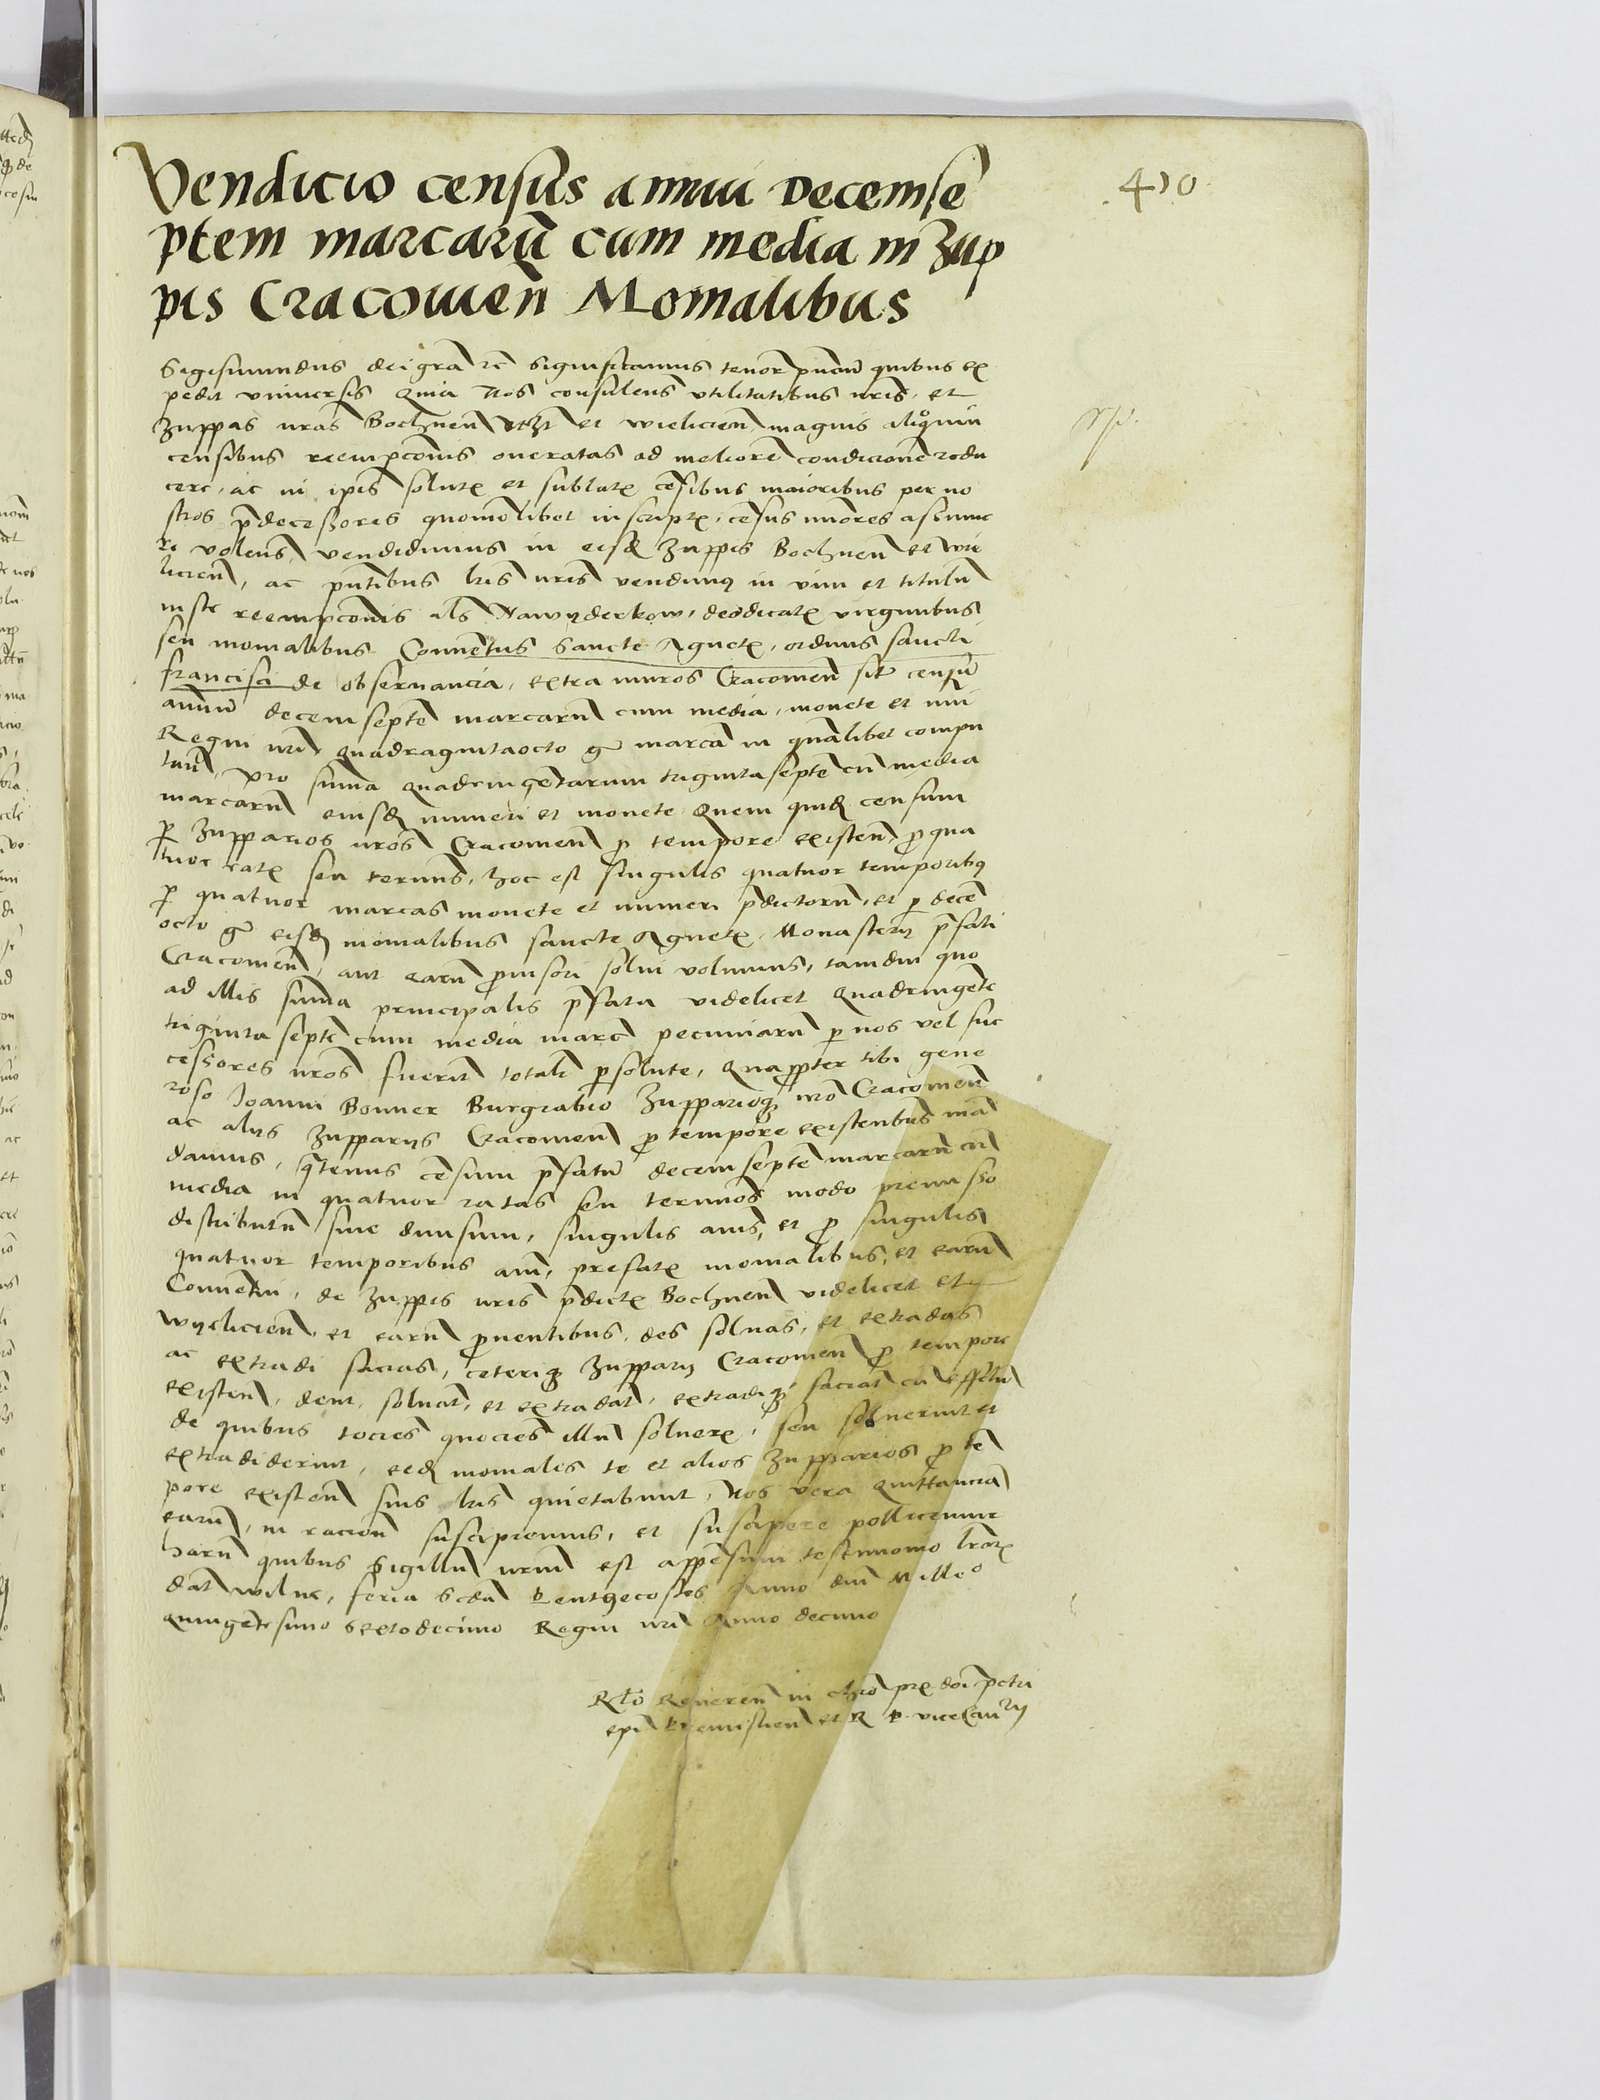 410
Vendicio census annui Decemse
ptem marcarū cum media in Zup
pis Cracouien̄ Monialibus
Sigismundus dei gra̅ rc̄ Significamus tenor̄ pn̄cium quibus ex
pedit vniuersis Quia Nos consulens vtilitatibus nr̄is, et
Zuppas nras̄ Bochnen̄ et wielicien̄ magnis
censibus reempcōnis oneratas ad meliorē condicionē redu
cere, ac in ip̄is solutꝭ et sublatꝭ cēsibus maioribus per no
stros p̄decessores quomōlibet inscriptꝭ, cēsus mīores assume
re volens, vendidimus in eisd̄ Zuppis Bochnen̄ et wie
licien̄, ac pn̄tibus lris̄ nris̄ vendimꝰ in vim et titulū
iuste reempcōnis al̄s Nawyderkow, deodicatꝭ virginibus
seu monialibus Conuētus Sancte Agnetꝭ, ordinis sancti
francisci de obseruancia, extra muros Cracouien̄ sit̄ censū
annuū decemseptē marcarū cum media, monete et nūi
Regni nrī quadragintaocto gͬ marcā in qualibet compu
tan̄, pro sum̄a quadringētarum trigintaseptē cū media
marcarū eiusd̄ numeri et monete Quem quid̄ censum
ꝑ Zupparios nros̄ Cracouien̄ ꝓ tempore existen̄, ꝓ qua
tuor ratꝭ seu terminis, hoc est singulis quatuor temporibꝰ
ꝑ quatuor marcas monete et numeri p̄dictorū, et ꝑ decē
octo gͬ eisd̄ monialibus sancte Agnetꝭ Monasterij p̄fati
Cracouien̄, aut earū ꝓuisori solui volumus, tamdiu quo
ad illis sum̄a principalis p̄fata videlicet Quadringētē
trigintaseptē cum media marc̄ pecuniarū ꝑ nos vel suc
cessores nros̄ fuerit totalr̄ ꝑsoluta, Quapropter tibi gene
roso Joanni Bonner Burgrabio Zupparioqꝫ nr̄o Cracouien̄
ac alijs Zupparijs Cracouien̄ ꝓ tempore existentibus mā
damus, q̄tenus cēsum p̄fatū decemseptē marcarū cū
media in quatuor ratas seu terminos modo premisso
distributū siue diuisum, singulis annis, et ꝓ singulis
quatuor temporibus anni, prefatꝭ monialibus, et earū
Conuētui, de Zuppis nris̄ p̄dictꝭ Bochnen̄ videlicet et
wyelicien̄ et earū ꝓuentibus, des soluas, et extradas
ac extradi facias, ceteriqꝫ Zupparij Cracouien̄ ꝓ tempore
existen̄, dent, soluāt, et extradāt, extradiqꝫ faciāt cū effctū
de quibus tocies quocies illum solueris, seu soluerint et
extradiderint, eed̄ moniales te et alios Zupparios ꝓ tē
pore existen̄ suis lris̄ quietabunt, Nos vero quittanciā
earū, in racion̄ suscipiemus, et suscipere pollicemur
harū quibus Sigillū nrūm est appēsum testimonio lrarꝭ
dat̄ wilne, feria Scd̄a Pentecostes Anno dn̄i Milleo
quingētesimo Sextodecimo Regni nrī Anno decimo
Rlo̅ Reueren̄ in chrō prꝭ dni̅ petri
epī Premislien̄ et R P vicecan̄rij